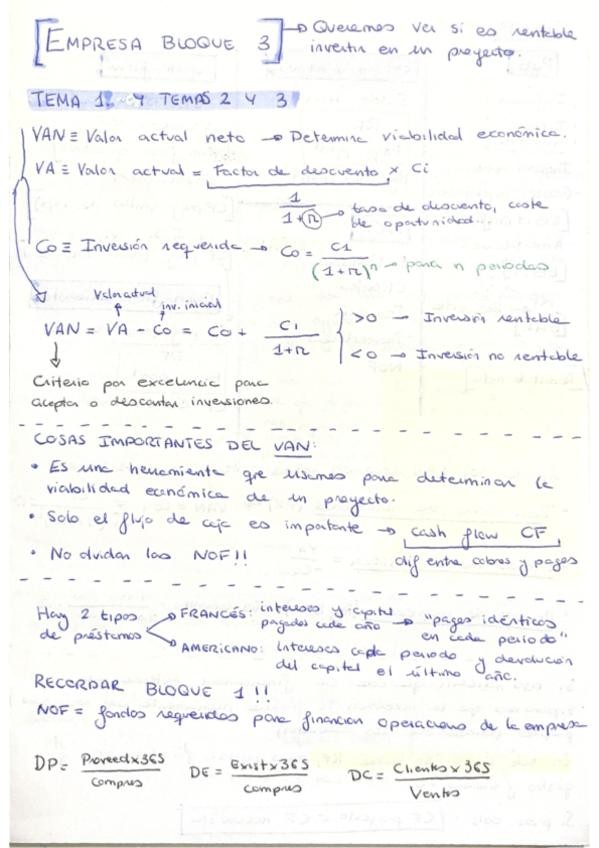 [EMPRESA BLOQUE 3] → Queremos ver si es rentable
invertir en un proyecto.
TEMA 1. Y TEMAS 2 Y 3
VAN ≡ Valor actual neto → Determina viabilidad económica.
VA ≡ Valor actual = Factor de descuento x Ci
1 / 1+r → tasa de descuento, coste
de oportunidad...
Co ≡ Inversión requerida → Co = C1 / (1+r)^n → para n periodos
Valor actual
inv. inicial
VAN = VA - Co = Co + Ci / 1+r { >0 → Inversión rentable
<0 → Inversión no rentable
Criterio por excelencia para
aceptar o descartar inversiones.
COSAS IMPORTANTES DEL VAN:
• Es una herramienta que usamos para determinar la
viabilidad económica de un proyecto.
• Solo el flujo de caja es importante → cash flow CF
dif entre cobros y pagos
• No olvidar las NOF!!
Hay 2 tipos
de préstamos
FRANCÉS: intereses y capital
pagados cada año → "pagos idénticos
en cada periodo"
AMERICANO: Intereses cada periodo y devolución
del capital el último año.
RECORDAR BLOQUE 1!!
NOF = fondos requeridos para financiar operaciones de la empresa
DP = Proveed x 365 / compras DE = Exist x 365 / compras DC = Clientes x 365 / Ventas